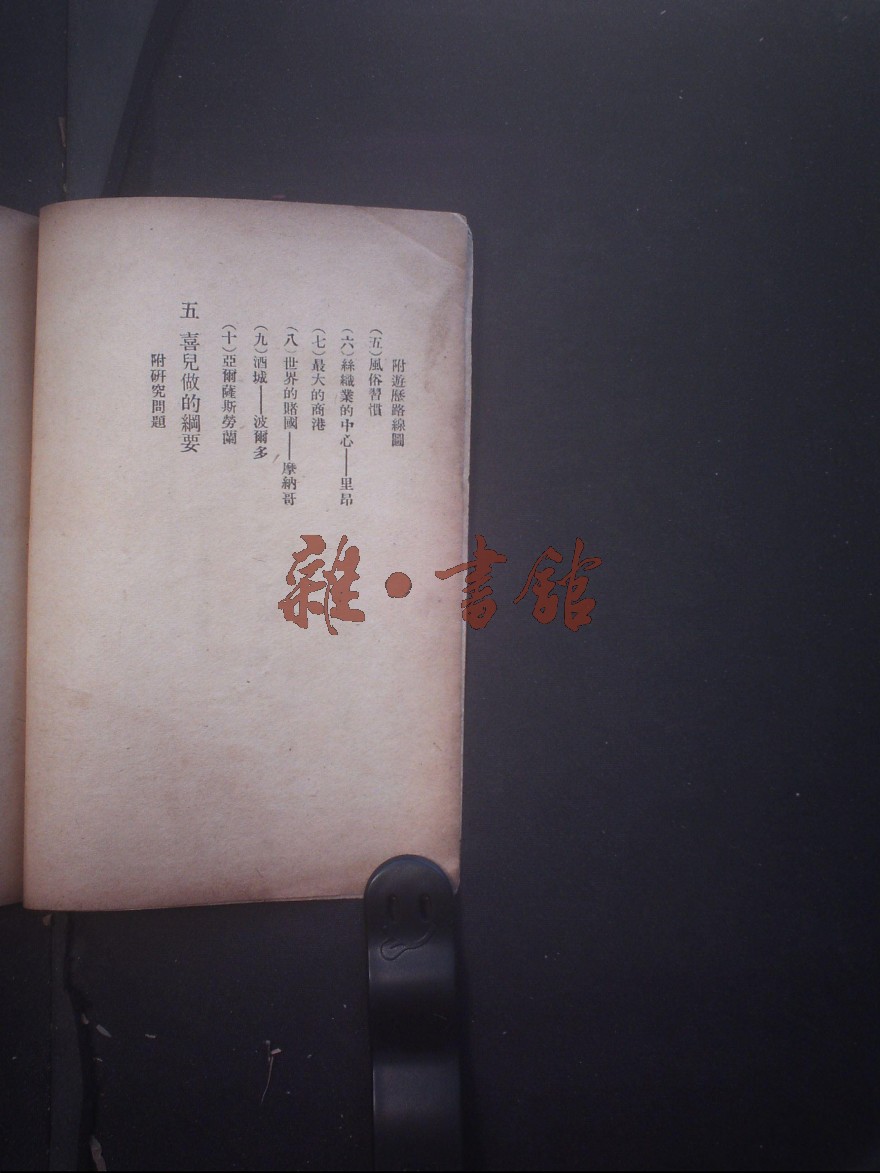 附遊歷路線圖
(五)風俗習慣
(六)絲織業的中心——里昂
(七)最大的商港
(八)世界的賭國——摩納哥
(九)酒城——波爾多
(十)亞爾薩斯勞蘭
五 喜兒做的綱要
附研究問題
雜•書館